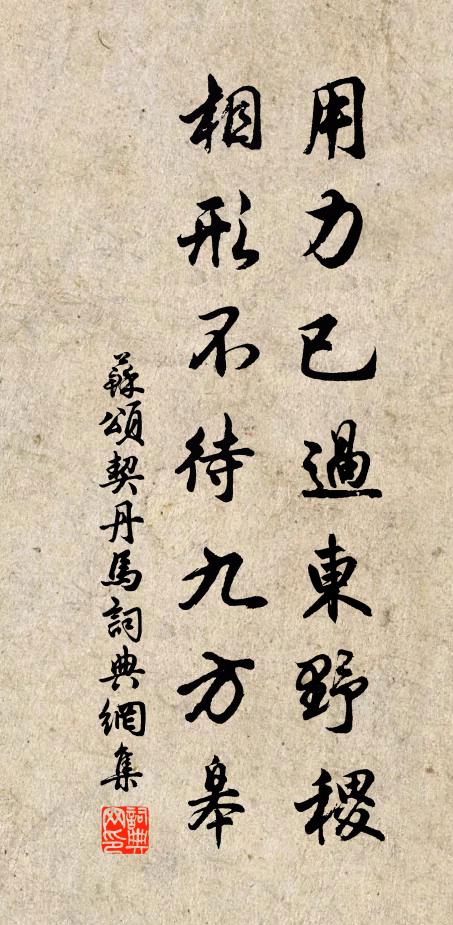 用力已過東野稷
相形不待九方皋
蘇頌契丹馬詞典網集
詞典网印